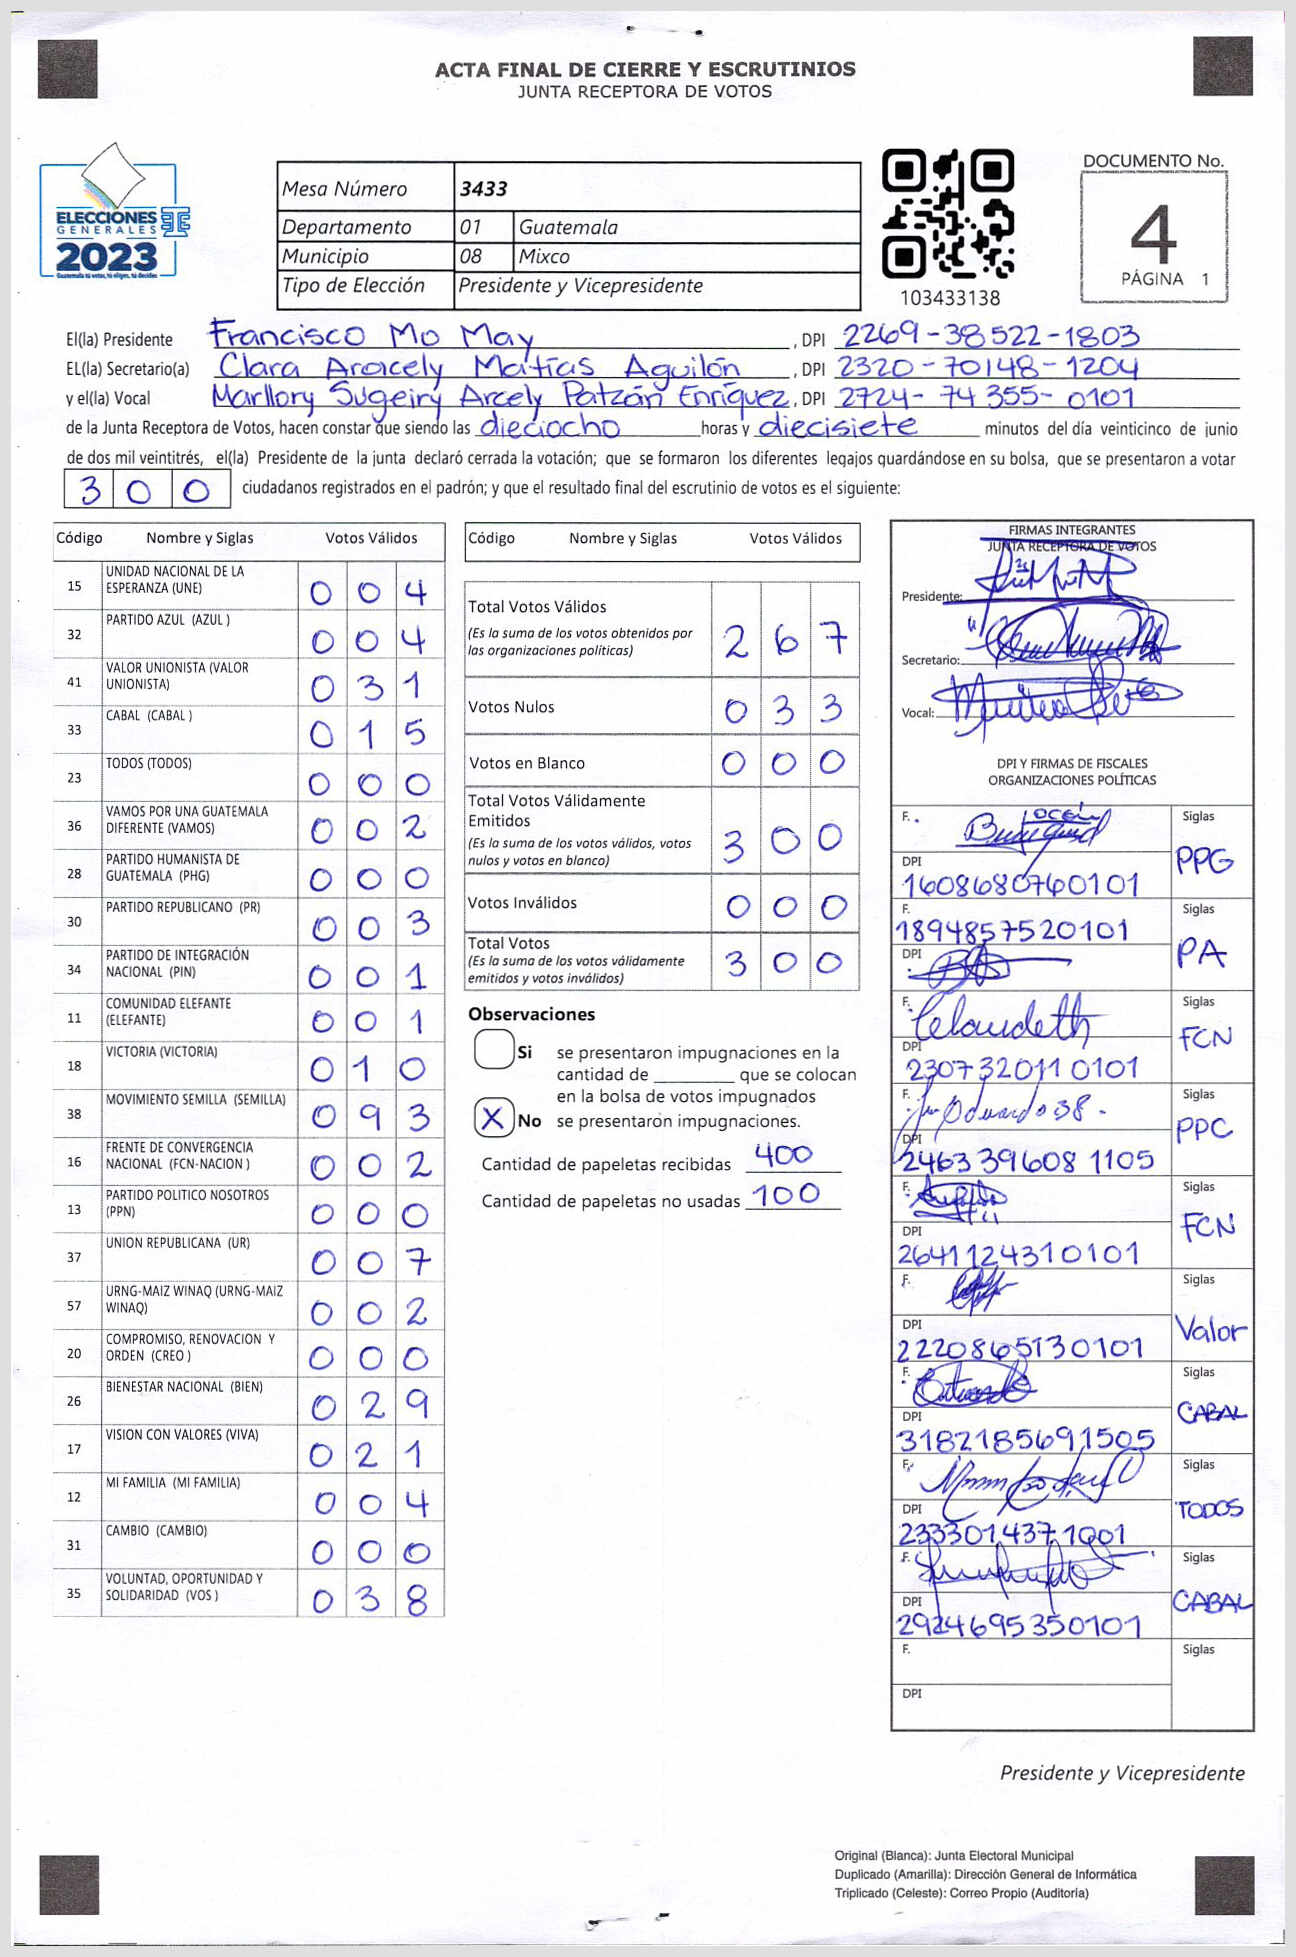 ACTA FINAL DE CIERRE Y ESCRUTINIOS
JUNTA RECEPTORA DE VOTOS
ELECCIONES
GENERALES
2023
Guatemala tú votas, tú eliges, tú decides
Mesa Número 3433
Departamento 01 Guatemala
Municipio 08 Mixco
Tipo de Elección Presidente y Vicepresidente
103433138
DOCUMENTO No.
4
PÁGINA 1
El(la) Presidente Francisco Mo May, DPI 2269-38522-1803
EL(la) Secretario(a) Clara Aracely Matías Aguilón, DPI 2320-70148-1204
y el(la) Vocal Marllory Sugeiry Arcely Patzán Enríquez, DPI 2724-74355-0101
de la Junta Receptora de Votos, hacen constar que siendo las dieciocho horas y diecisiete minutos del día veinticinco de junio
de dos mil veintitrés, el(la) Presidente de la junta declaró cerrada la votación; que se formaron los diferentes legajos guardándose en su bolsa, que se presentaron a votar
300 ciudadanos registrados en el padrón; y que el resultado final del escrutinio de votos es el siguiente:
Código Nombre y Siglas Votos Válidos
15 UNIDAD NACIONAL DE LA
ESPERANZA (UNE) 0 0 4
32 PARTIDO AZUL (AZUL ) 0 0 4
41 VALOR UNIONISTA (VALOR
UNIONISTA) 0 3 1
33 CABAL (CABAL ) 0 1 5
23 TODOS (TODOS) 0 0 0
36 VAMOS POR UNA GUATEMALA
DIFERENTE (VAMOS) 0 0 2
28 PARTIDO HUMANISTA DE
GUATEMALA (PHG) 0 0 0
30 PARTIDO REPUBLICANO (PR) 0 0 3
34 PARTIDO DE INTEGRACIÓN
NACIONAL (PIN) 0 0 1
11 COMUNIDAD ELEFANTE
(ELEFANTE) 0 0 1
18 VICTORIA (VICTORIA) 0 1 0
38 MOVIMIENTO SEMILLA (SEMILLA) 0 9 3
16 FRENTE DE CONVERGENCIA
NACIONAL (FCN-NACION ) 0 0 2
13 PARTIDO POLITICO NOSOTROS
(PPN) 0 0 0
37 UNION REPUBLICANA (UR) 0 0 7
57 URNG-MAIZ WINAQ (URNG-MAIZ
WINAQ) 0 0 2
20 COMPROMISO, RENOVACION Y
ORDEN (CREO ) 0 0 0
26 BIENESTAR NACIONAL (BIEN) 0 2 9
17 VISION CON VALORES (VIVA) 0 2 1
12 MI FAMILIA (MI FAMILIA) 0 0 4
31 CAMBIO (CAMBIO) 0 0 0
35 VOLUNTAD, OPORTUNIDAD Y
SOLIDARIDAD (VOS ) 0 3 8
Código Nombre y Siglas Votos Válidos
Total Votos Válidos
(Es la suma de los votos obtenidos por
las organizaciones politicas) 2 6 7
Votos Nulos 0 3 3
Votos en Blanco 0 0 0
Total Votos Válidamente
Emitidos
(Es la suma de los votos válidos, votos
nulos y votos en blanco) 3 0 0
Votos Inválidos 0 0 0
Total Votos
(Es la suma de los votos válidamente
emitidos y votos inválidos) 3 0 0
Observaciones
Si se presentaron impugnaciones en la
cantidad de ________ que se colocan
en la bolsa de votos impugnados
X No se presentaron impugnaciones.
Cantidad de papeletas recibidas 400
Cantidad de papeletas no usadas 100
FIRMAS INTEGRANTES
JUNTA RECEPTORA DE VOTOS
Presidente:
Secretario:
Vocal:
DPI Y FIRMAS DE FISCALES
ORGANIZACIONES POLÍTICAS
F. Siglas
PPG
DPI
1608680760101
F. Siglas
1894857520101
PA
DPI
F. Claudeth Siglas
FCN
DPI
2307320110101
F. Eduardo 38. Siglas
PPC
DPI
2463396081105
F. Siglas
FCN
DPI
2641124310101
F. Siglas
Valor
DPI
2220865130101
F. Siglas
CABAL
DPI
3182185691505
F. Siglas
TODOS
DPI
2333014371001
F. Siglas
CABAL
DPI
2924695350101
F. Siglas
DPI
Presidente y Vicepresidente
Original (Blanca): Junta Electoral Municipal
Duplicado (Amarilla): Dirección General de Informática
Triplicado (Celeste): Correo Propio (Auditoría)